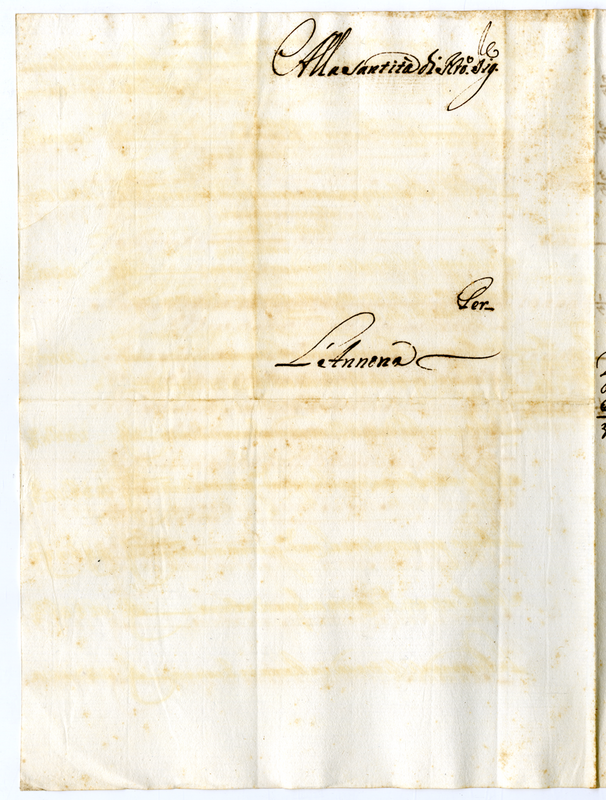 Alla Santità di Nro. Sig.re
Per
L'Annona